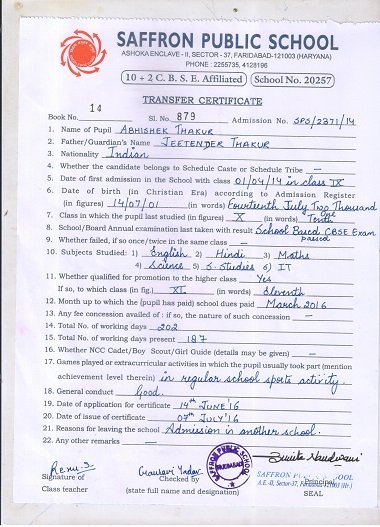 SAFFRON PUBLIC SCHOOL
ASHOKA ENCLAVE - II, SECTOR - 37, FARIDABAD-121003 (HARYANA)
PHONE : 2255735, 4128196
10 + 2 C. B. S. E. Affiliated School No. 20257
TRANSFER CERTIFICATE
Book No. 14 Sl. No. 879 Admission No. SPS/2371/14
1. Name of Pupil ABHISHEK THAKUR
2. Father/Guardian's Name JEETENDER THAKUR
3. Nationality Indian
4. Whether the candidate belongs to Schedule Caste or Schedule Tribe —
5. Date of first admission in the School with class 01/04/14 in class IX
6. Date of birth (in Christian Era) according to Admission Register
(in figures) 14/07/01 (in words) Fourteenth July Two Thousand One
7. Class in which the pupil last studied (in figures) X (in words) Tenth
8. School/Board Annual examination last taken with result School Based CBSE Exam passed
9. Whether failed, if so once/twice in the same class —
10. Subjects Studied: 1) English 2) Hindi 3) Maths
4) Science 5) S. Studies 6) IT
11. Whether qualified for promotion to the higher class Yes
If so, to which class (in fig.) XI (in words) Eleventh
12. Month up to which the (pupil has paid) school dues paid March 2016
13. Any fee concession availed of : if so, the nature of such concession —
14. Total No. of working days 202
15. Total No. of working days present 187
16. Whether NCC Cadet/Boy Scout/Girl Guide (details may be given) —
17. Games played or extracurricular activities in which the pupil usually took part (mention
achievement level therein) in regular school sports activity.
18. General conduct Good.
19. Date of application for certificate 14th JUNE'16
20. Date of issue of certificate 07th JULY'16
21. Reasons for leaving the school Admission in another school.
22. Any other remarks —
Signature of
Class teacher
Gaurav Yadav
Checked by
(state full name and designation)
SAFFRON PUBLIC SCHOOL
FARIDABAD
SAFFRON PUBLIC SCHOOL
A.E.-II, Sector-37,
Principal
SEAL